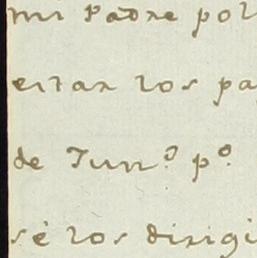 mi Padre por
estar los pa
de Jun.º p.º
se los dirigi